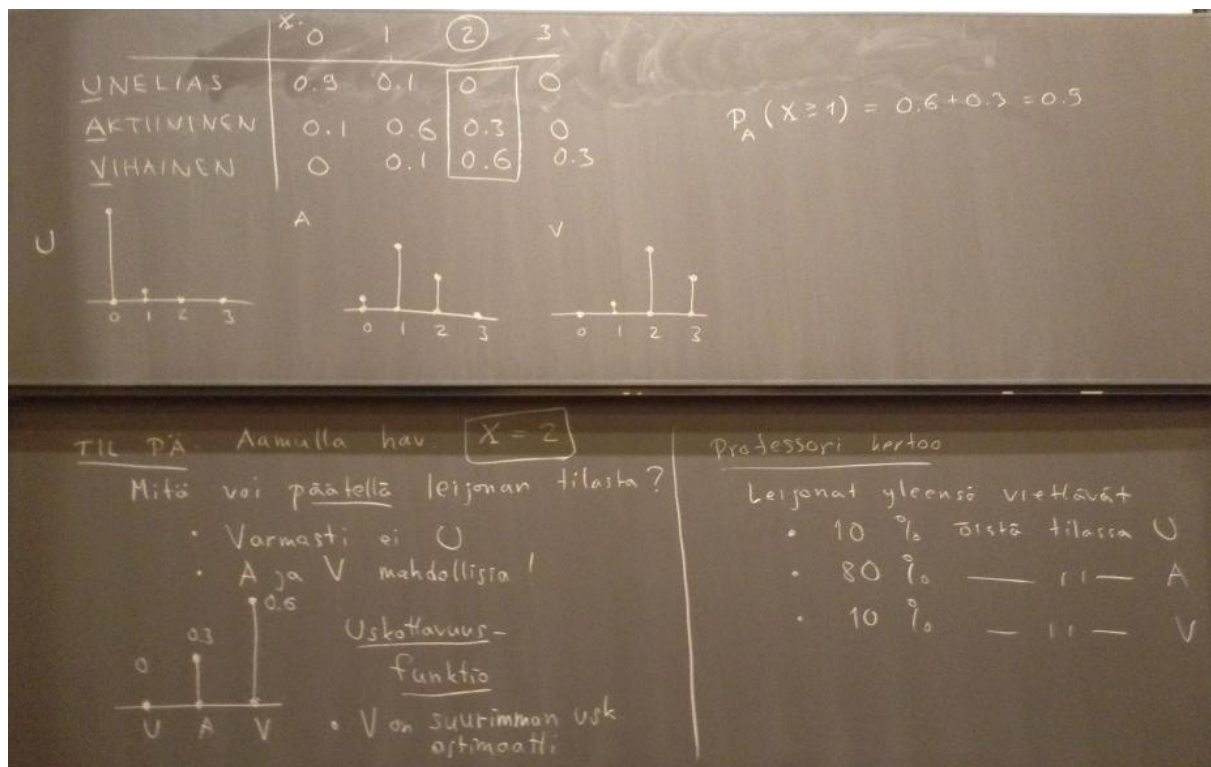 X: 0 1 2 3
UNELIAS 0.9 0.1 0 0
AKTIIVINEN 0.1 0.6 0.3 0
VIHAINEN 0 0.1 0.6 0.3
P_A (X ≥ 1) = 0.6 + 0.3 = 0.9
U
0 1 2 3
A
0 1 2 3
V
0 1 2 3
TIL PÄ. Aamulla hav. X = 2
Mitä voi päätellä leijonan tilasta?
• Varmasti ei U
• A ja V mahdollisia!
0 0.3 0.6
U A V
Uskottavuus-
funktio
• V on suurimman usk.
estimaatti
Professori kertoo
Leijonat yleensä viettävät
• 10 % öistä tilassa U
• 80 % — 11 — A
• 10 % — 11 — V